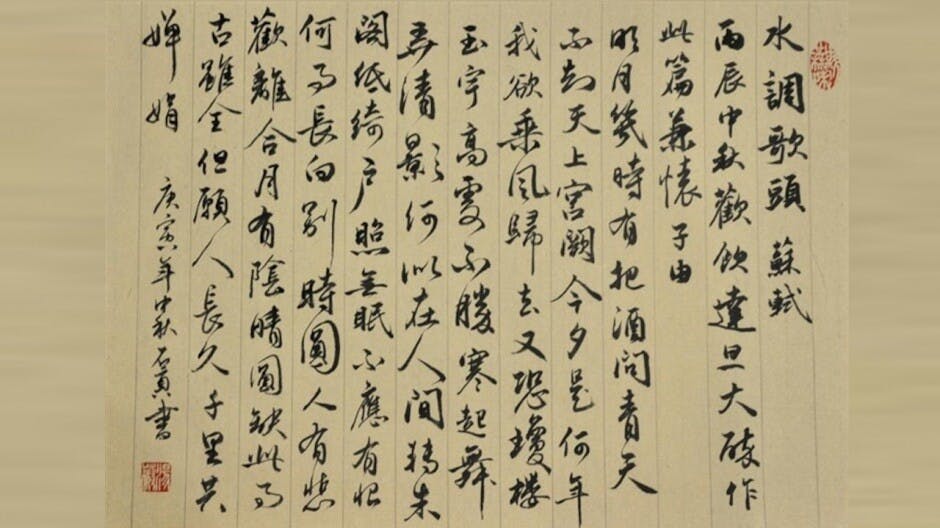 水調歌頭 蘇軾
丙辰中秋歡飲達旦大醉作
此篇兼懷子由
明月幾時有把酒問青天
不知天上宮闕今夕是何年
我欲乘風歸去又恐瓊樓
玉宇高處不勝寒起舞
弄清影何似在人間轉朱
閣低綺戶照無眠不應有恨
何事長向別時圓人有悲
歡離合月有陰晴圓缺此事
古難全但願人長久千里共
嬋娟 庚寅年中秋 書